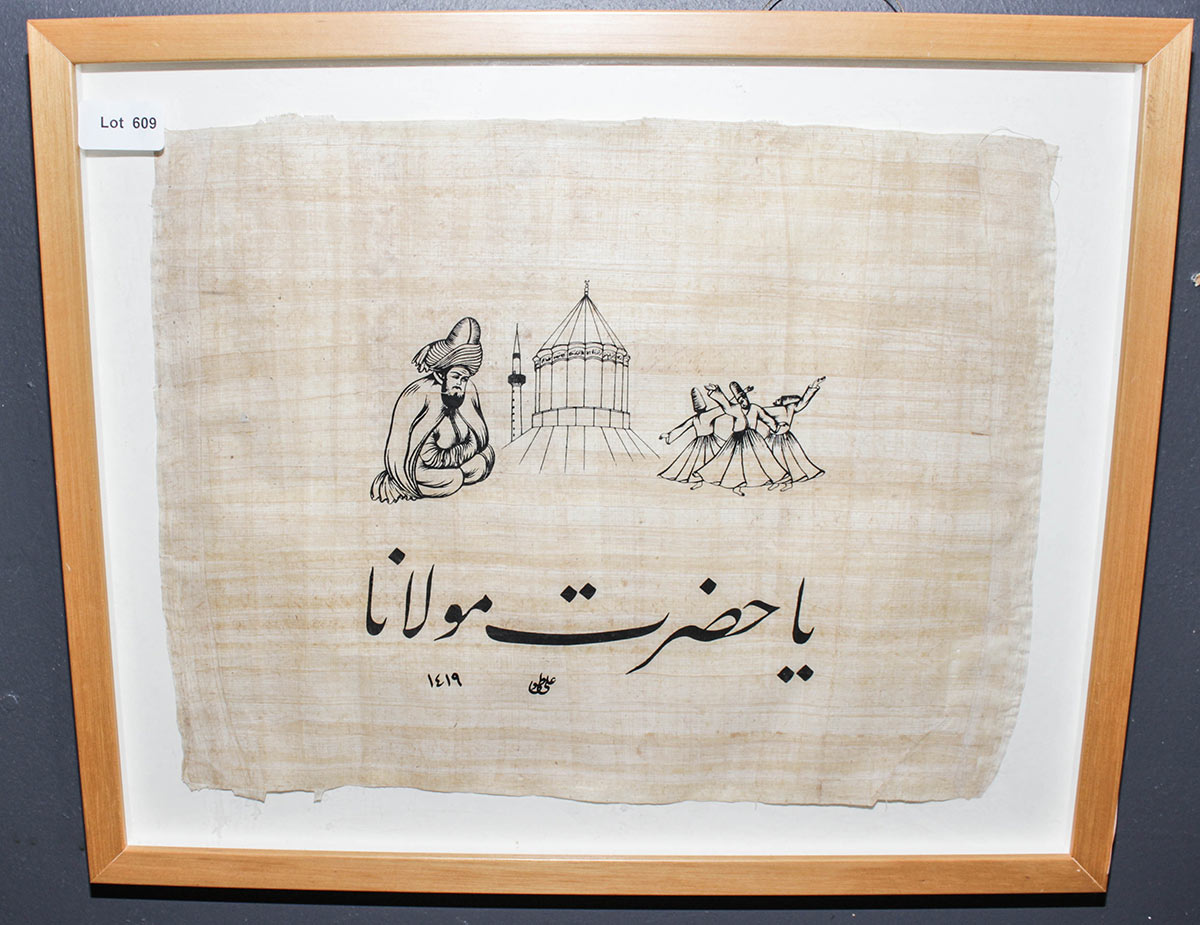 Lot 609
يا حضرت مولانا
١٤١٩